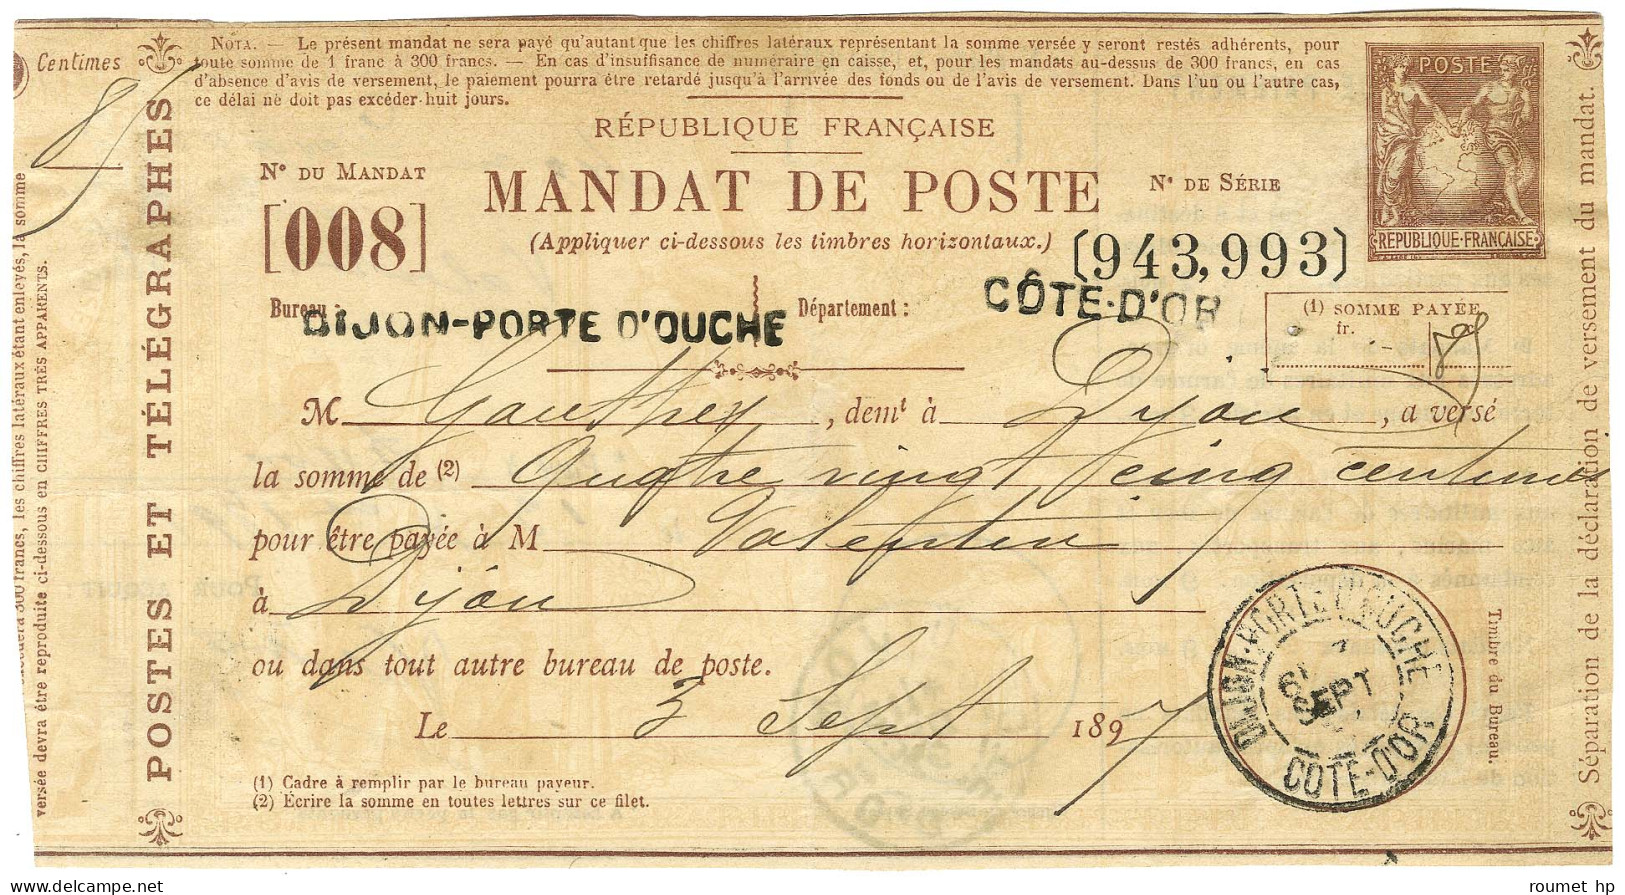 Centimes
85
Nota. — Le présent mandat ne sera payé qu'autant que les chiffres latéraux représentant la somme versée y seront restés adhérents, pour
toute somme de 1 franc à 300 francs. — En cas d'insuffisance de numéraire en caisse, et, pour les mandats au-dessus de 300 francs, en cas
d'absence d'avis de versement, le paiement pourra être retardé jusqu'à l'arrivée des fonds ou de l'avis de versement. Dans l'un ou l'autre cas,
ce délai ne doit pas excéder huit jours.
POSTE
REPUBLIQUE·FRANÇAISE
RÉPUBLIQUE FRANÇAISE
No DU MANDAT
[008]
MANDAT DE POSTE
(Appliquer ci-dessous les timbres horizontaux.)
No DE SÉRIE
[943,993]
Bureau :
DIJON-PORTE D'OUCHE
Département :
CÔTE-D'OR
(1) SOMME PAYÉE
fr.
85
M Gauthey, demt à Dijon, a versé
la somme de (2) Quatre vingt cinq centimes
pour être payée à M Valentin
à Dijon
ou dans tout autre bureau de poste.
Le 3 Sept 1897
DIJON-PORTE D'OUCHE
SEPT
CÔTE-D'OR
Timbre du Bureau.
(1) Cadre à remplir par le bureau payeur.
(2) Écrire la somme en toutes lettres sur ce filet.
POSTES ET TÉLÉGRAPHES
300 francs, les chiffres latéraux étant enlevés, la somme
versée devra être reproduite ci-dessous en CHIFFRES TRÈS APPARENTS.
Séparation de la déclaration de versement du mandat.
POUR ACQUIT :
roumet hp
delcampe.net